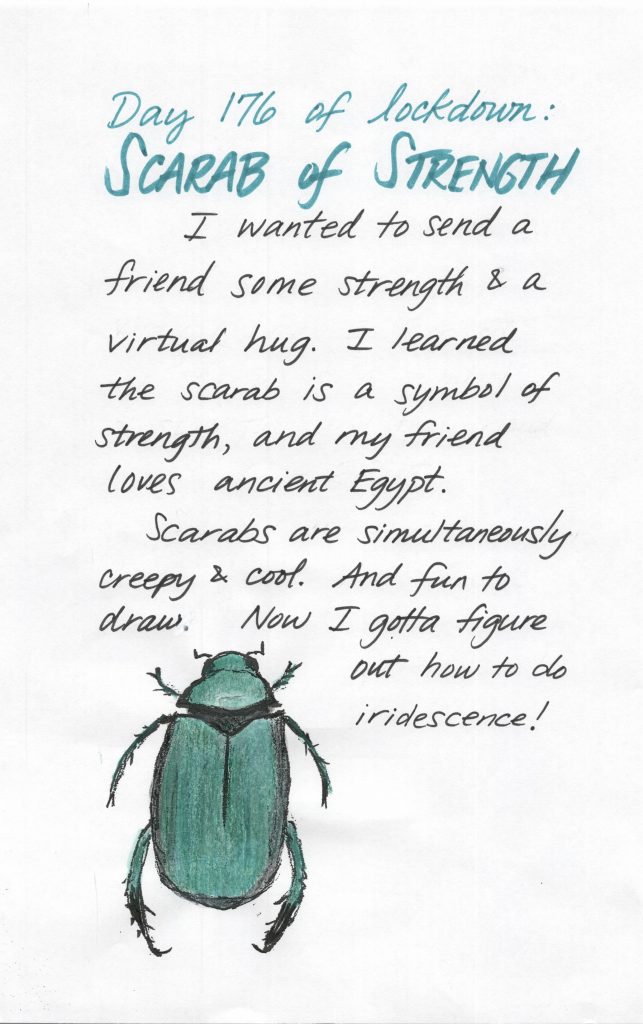 Day 176 of lockdown:
SCARAB of STRENGTH
I wanted to send a
friend some strength & a
virtual hug. I learned
the scarab is a symbol of
strength, and my friend
loves ancient Egypt.
Scarabs are simultaneously
creepy & cool. And fun to
draw. Now I gotta figure
out how to do
iridescence!